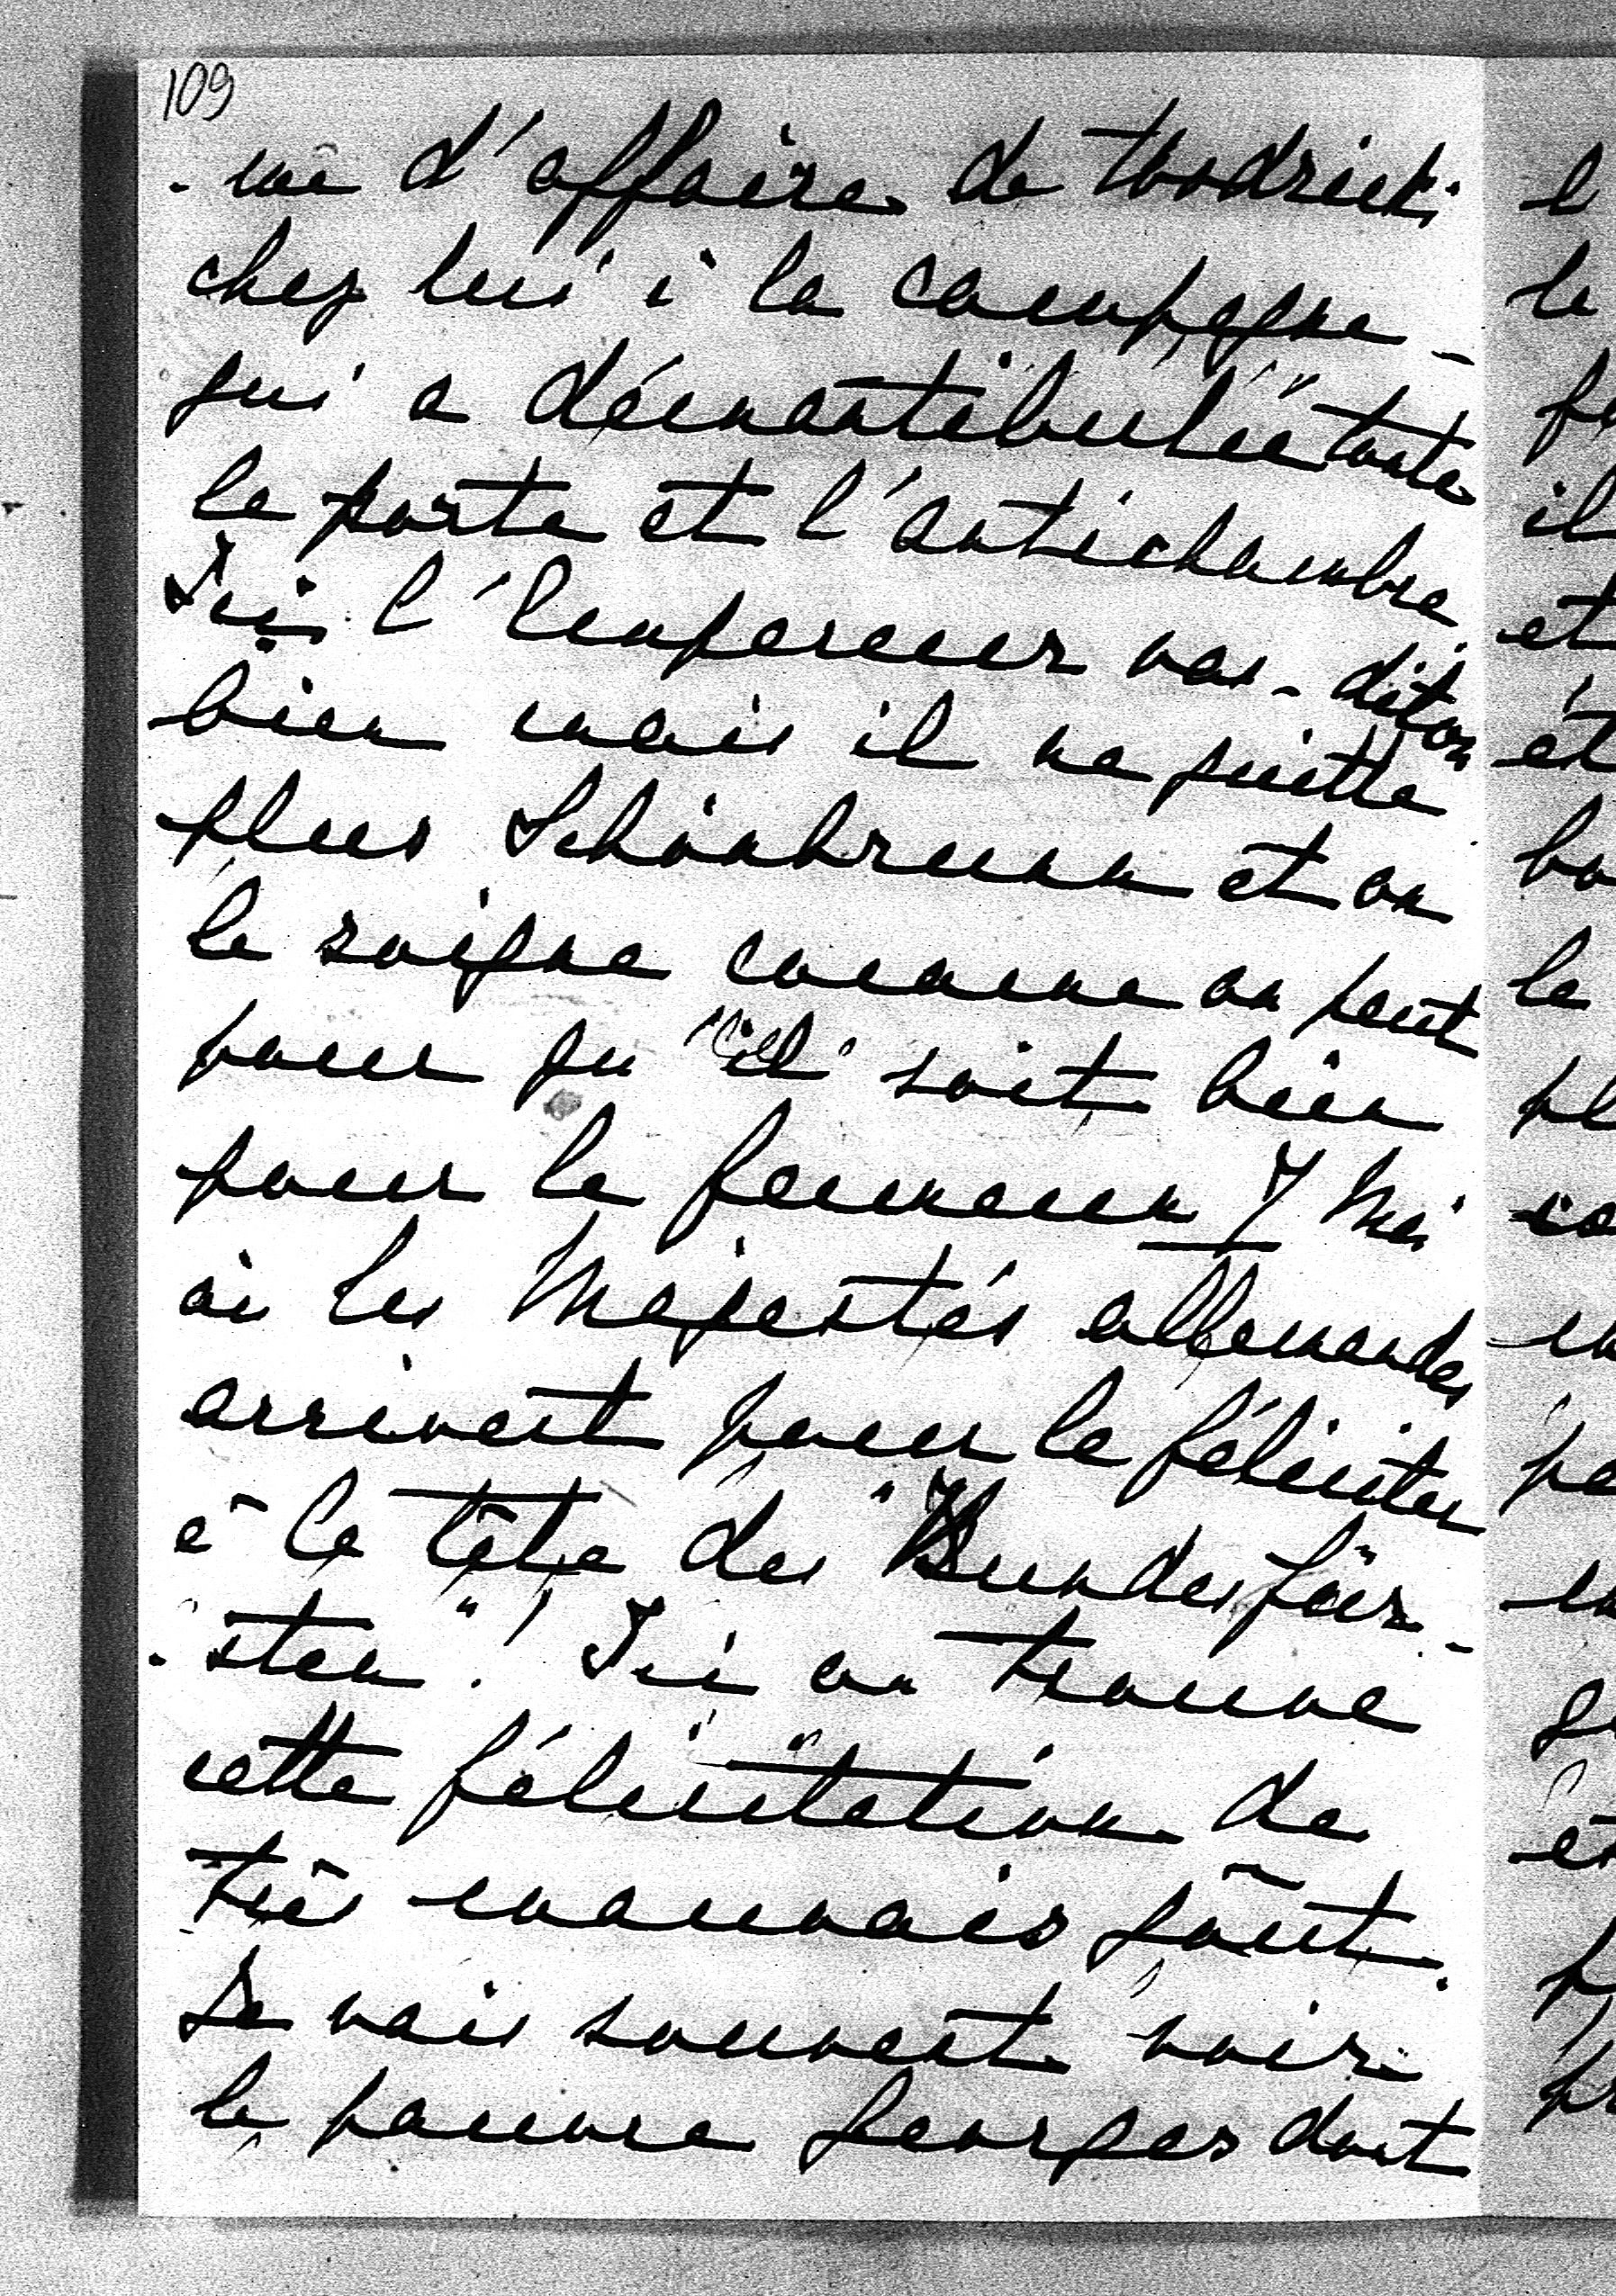 109
-me d'affaire de
chez lui à la campagne -
qui a démantibulée toute
la porte et l'antichambre.
Ici l'Empereur vas-diton
bien mais il ne quitte
plus Schönbrunn et on
le soigne comme on peut
pour qu'il soit bien
pour le fameux 7 Mai
où les Majestés allemandes
arrivent pour le féliciter
à la tête des "Bundesfür-
-sten"! Ici on trouve
cette félicitation de
très mauvais goût.
Je vais souvent voir
le pauvre Georges dont
l
le
il
et
ét
bo
le
pl
co
pa
et
p
pr